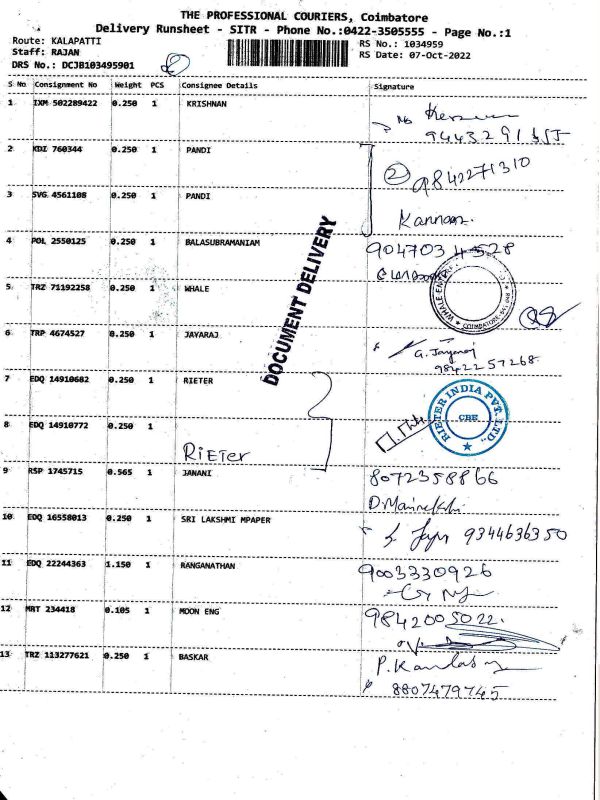 THE PROFESSIONAL COURIERS, Coimbatore
Delivery Runsheet - SITR - Phone No.:0422-3505555 - Page No.:1
Route: KALAPATTI
Staff: RAJAN
DRS No.: DCJB103495901
RS No.: 1034959
RS Date: 07-Oct-2022
S No Consignment No Weight PCS Consignee Details Signature
1 IXM 502289422 0.250 1 KRISHNAN
2 KDI 760344 0.250 1 PANDI
2 9842271310
3 SVG 4561108 0.250 1 PANDI
Kannan
4 POL 2550125 0.250 1 BALASUBRAMANIAM 904703 4528
DOCUMENT DELIVERY
5 TRZ 71192258 0.250 1 WHALE
WHALE COIMBATORE
6 TRP 4674527 0.250 1 JAYARAJ G. Jayaraj
98422 57268
7 EDQ 14910682 0.250 1 RIETER
2
RIETER INDIA PVT. LTD.,
CBE
8 EDQ 14910772 0.250 1
RIETER
9 RSP 1745715 0.565 1 JANANI 8072358866
10 EDQ 16558013 0.250 1 SRI LAKSHMI MPAPER 9344636350
11 EDQ 22244363 1.150 1 RANGANATHAN 9003330926
12 MRT 234418 0.105 1 MOON ENG 9842005022.
13 TRZ 113277621 0.250 1 BASKAR
8807479745